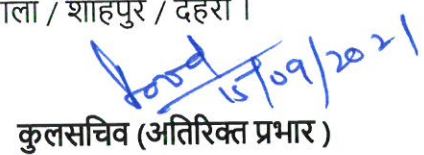 ाला / शाहपुर / देहरा ।
15/09/2021
कुलसचिव (अतिरिक्त प्रभार )